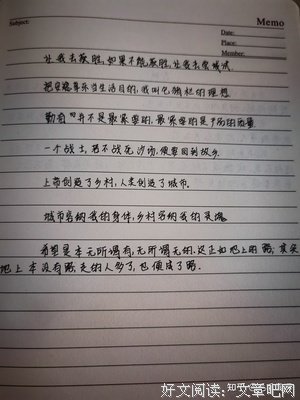 Subject:
Memo
Date:
Place:
Member:
让我去获胜,如果不能获胜,让我去尝试
把安稳享乐当生活目的,我叫它猪栏的理想
勤奋并不是最紧要的,最紧要的是
一个战士,若不战死沙场,便要回到故乡.
上帝创造了乡村,人类创造了城市.
城市容纳我的身体,乡村容纳我的灵魂
希望是本无所谓有,无所谓无的.这正如地上的路;其实
地上本没有路,走的人多了,也便成了路.
好文阅读:文章吧网